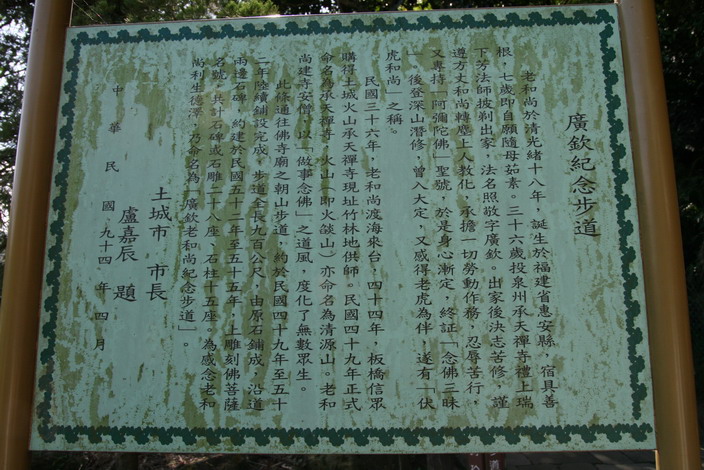 廣欽紀念步道
老和尚於清光緒十八年，誕生於福建省惠安縣，宿具善
根，七歲即自願隨母茹素。三十六歲投泉州承天禪寺禮上瑞
下芳法師披剃出家，法名照敬字廣欽。出家後決志苦修，謹
遵方丈和尚轉塵上人教化，承擔一切勞動作務，忍辱苦行，
又專持「阿彌陀佛」聖號，於是身心漸定，終証「念佛三昧
」，後登深山潛修，曾入大定，又感得老虎為伴，遂有「伏
虎和尚」之稱。
民國三十六年，老和尚渡海來台，四十四年，板橋信眾
購得土城火山承天禪寺現址竹林地供師。民國四十九年正式
命名為承天禪寺，火山（即火燄山）亦命名為清源山。老和
尚建寺安僧，以「做事念佛」之道風，度化了無數眾生。
此條通往佛寺廟之朝山步道，約於民國四十九年至五十
二年陸續鋪設完成，步道全長九百公尺，由原石鋪成，沿道
兩邊石碑，約建於民國五十二年至五十五年，上雕刻佛菩薩
名號，共計石碑或石雕二十八座、石柱十五座。為感念老和
尚利生德澤，乃命名為「廣欽老和尚紀念步道」。
土城市 市長
盧嘉辰 題
中華民國九十四年四月